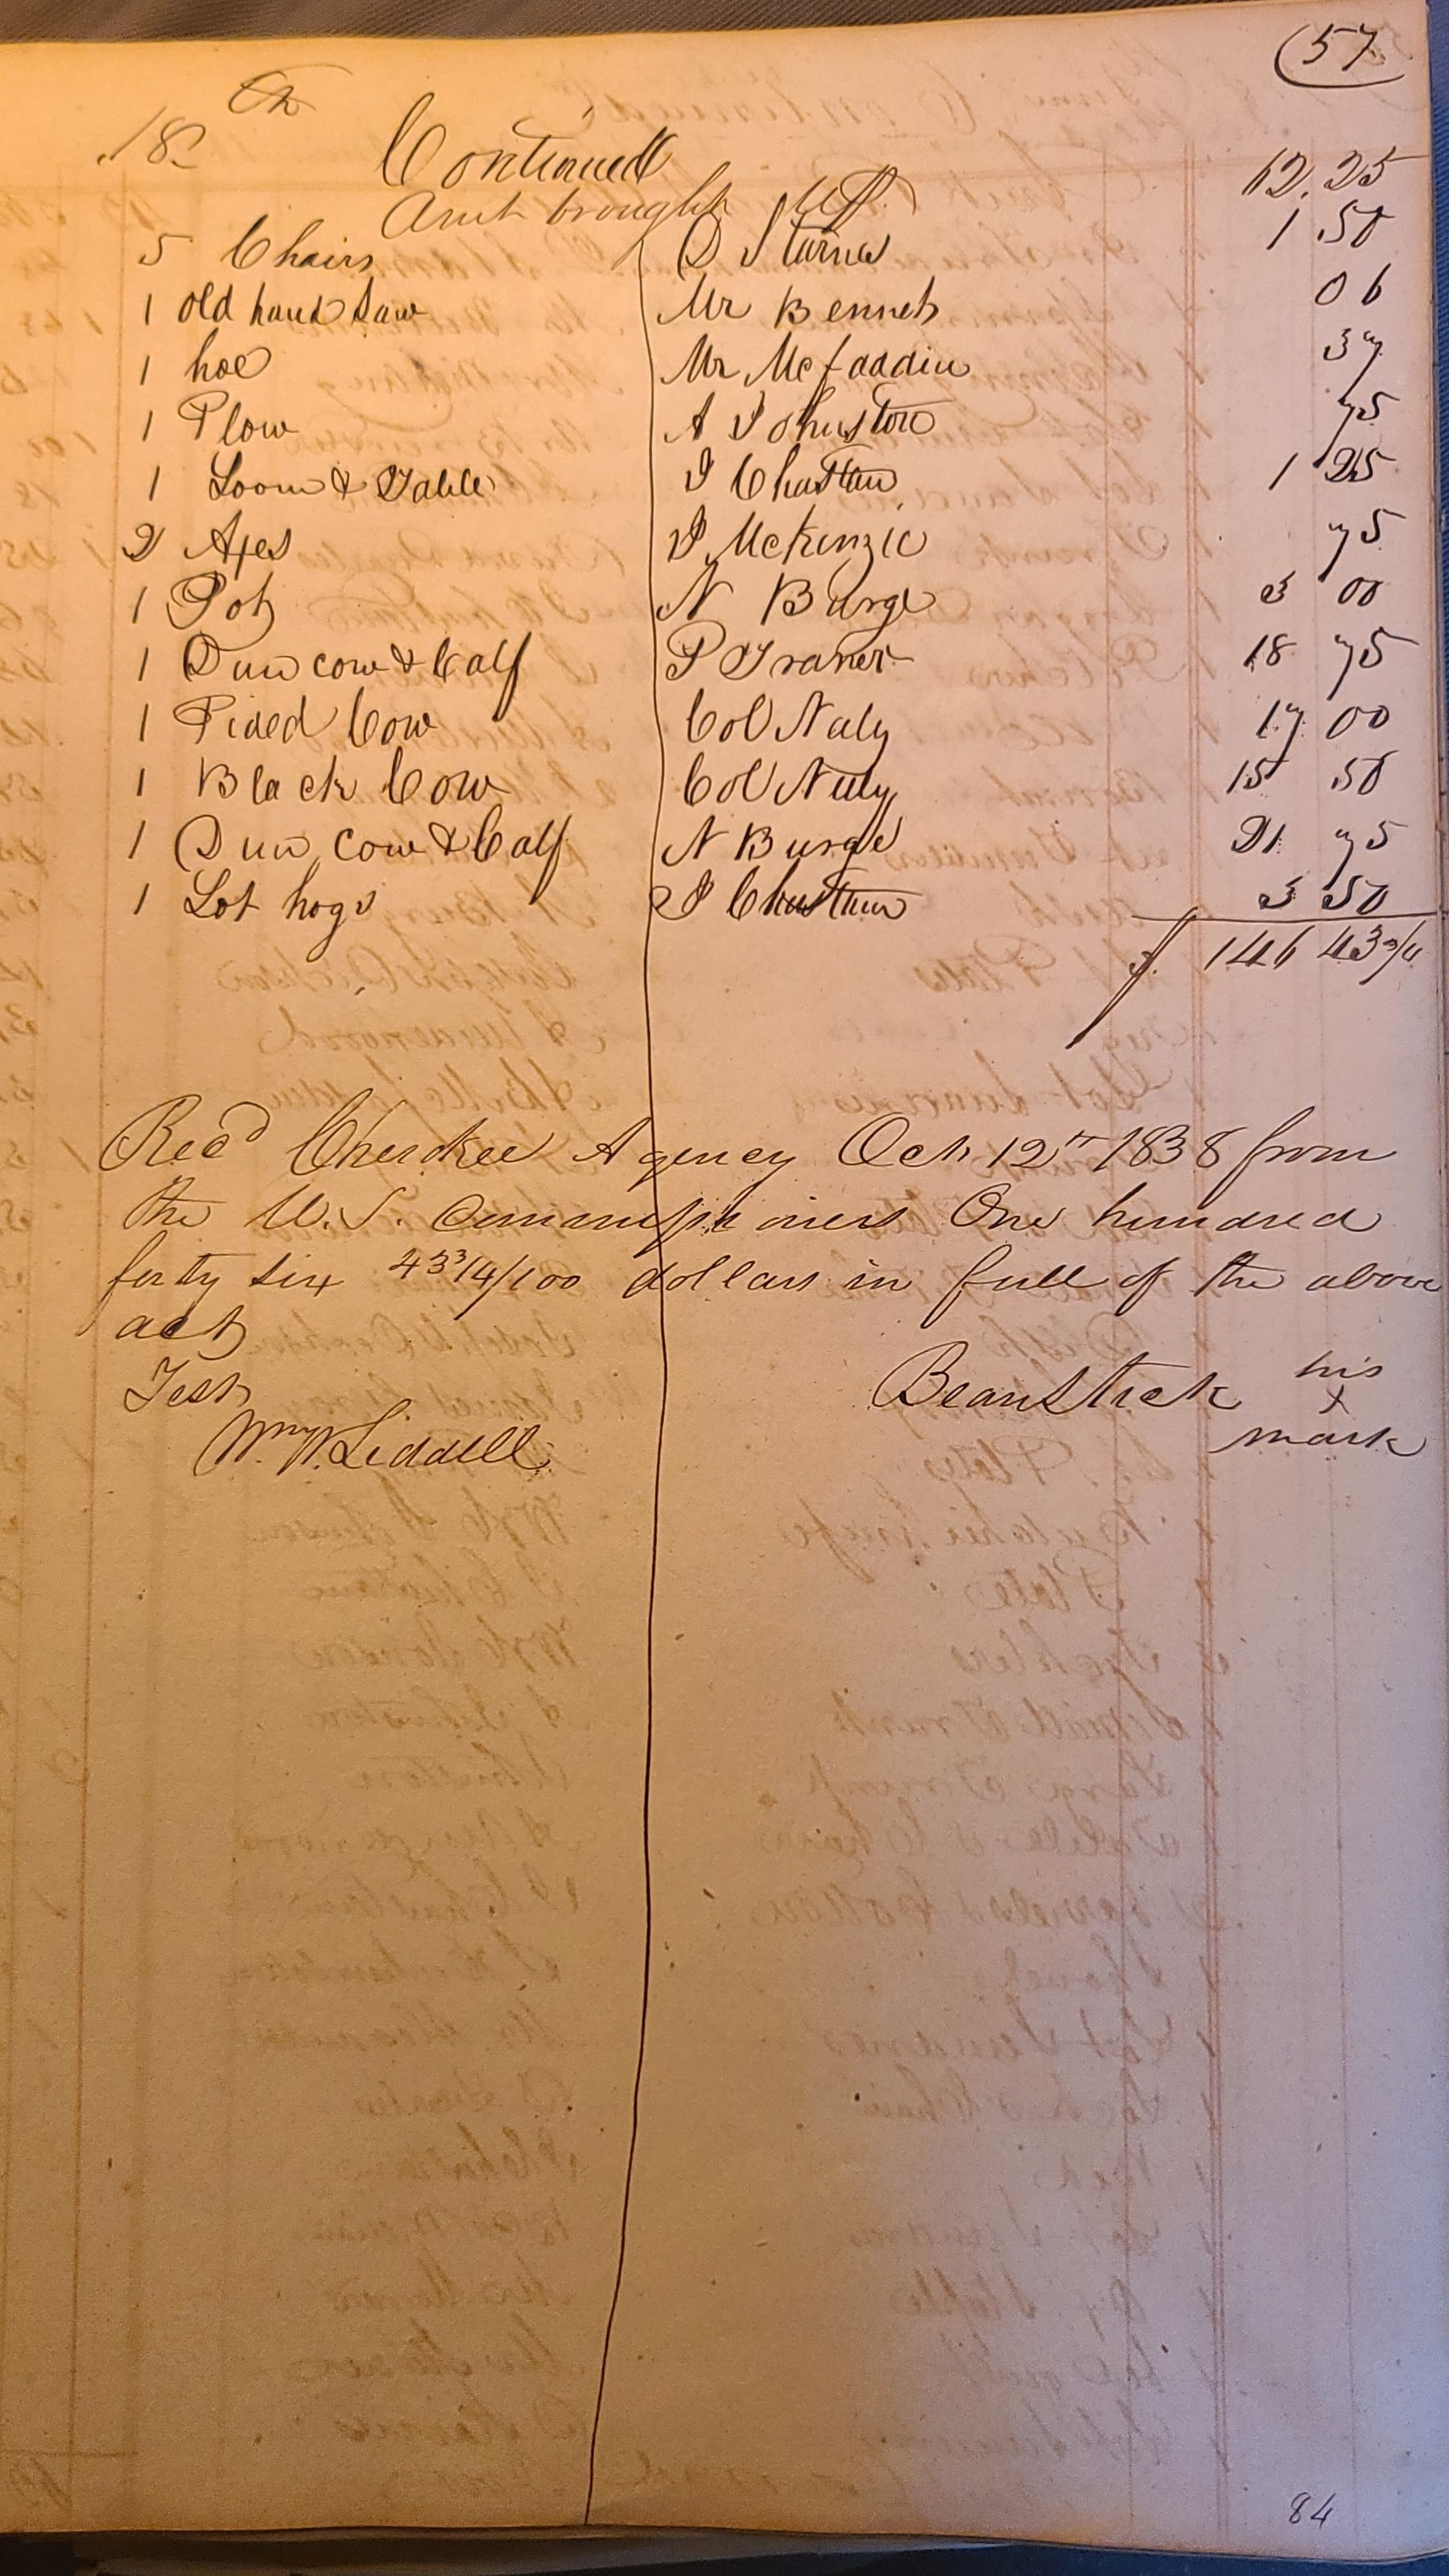 (57
Cr
18. Continued
Amt brought up. 62.25
5 Chairs D Starnes 1 50
1 old hand saw Mr Bennet 06
1 hoe Mr McFaddin 37
1 Plow A Johnston 75
1 Loom & Table J Chastain 1 25
2 Axes J McKenzie 75
1 Pot N Burge 3 00
1 Dun cow & Calf P Traner 18 75
1 Pided Cow Col Nely 17 00
1 Black Cow Col Nely 15 50
1 Dun cow & Calf N Burge 21 75
1 Lot hogs J Chastain 3 50
146 43 3/4
Recd Cherokee Agency Oct 12th 1838 from
the U.S. Commissioners One hundred
forty six 43 3/4/100 dollars in full of the above
act
Test Beanstick his x mark
Wm W. Liddell
84